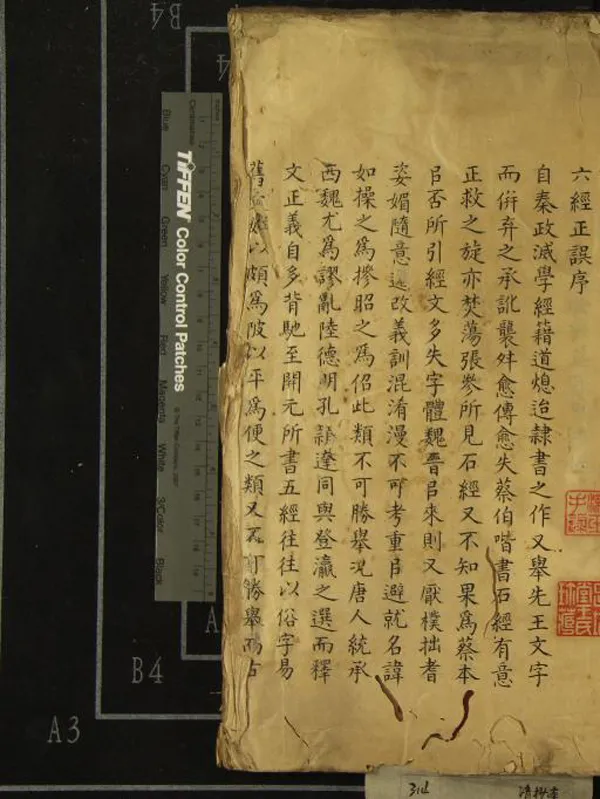 六經正誤序
自秦政滅學經籍道熄迨隷書之作又舉先王文字
而倂弃之承訛襲舛愈傳愈失蔡伯喈書石經有意
正救之旋亦焚蕩張參所見石經又不知果爲蔡本
㠯否所引經文多失字體魏晉㠯來則又厭樸拙耆
姿媚隨意遷改義訓混淆漫不可考重㠯避就名諱
如操之爲摻昭之爲佋此類不可勝舉况唐人統承
西魏尤爲謬亂陸德明孔穎達同與登瀛之選而釋
文正義自多背馳至開元所書五經往往以俗字易
舊 以頗爲陂以平爲便之類又不可勝舉而古
TIFFEN Color Control Patches
Blue
Cyan
Green
Yellow
Red
Magenta
White
3/Color
Black
Inches
Centimetres
B4
A3
B4
314
清抄本